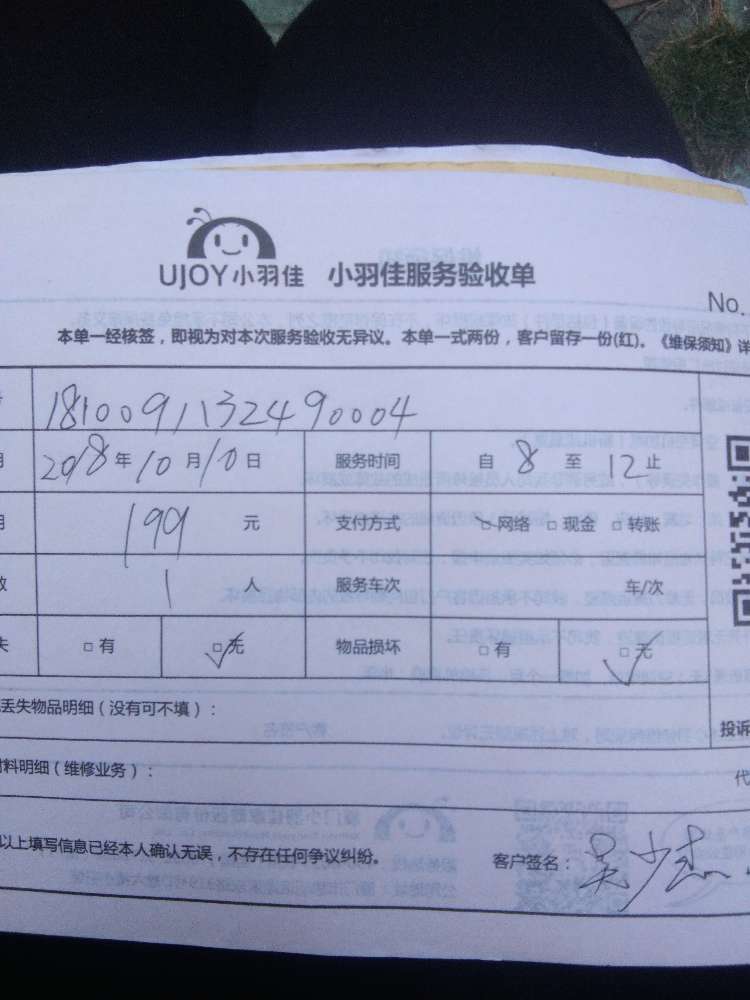 UJOY小羽佳 小羽佳服务验收单
No.
本单一经核签，即视为对本次服务验收无异议。本单一式两份，客户留存一份(红)。《维保须知》详
1810091132490004
2018年10月10日 服务时间 自8至12止
199元 支付方式 □网络 □现金 □转账
1人 服务车次 车/次
失 □有 □无 物品损坏 □有 □无
丢失物品明细（没有可不填）：
投诉
材料明细（维修业务）：
代
以上填写信息已经本人确认无误，不存在任何争议纠纷。 客户签名：吴少杰